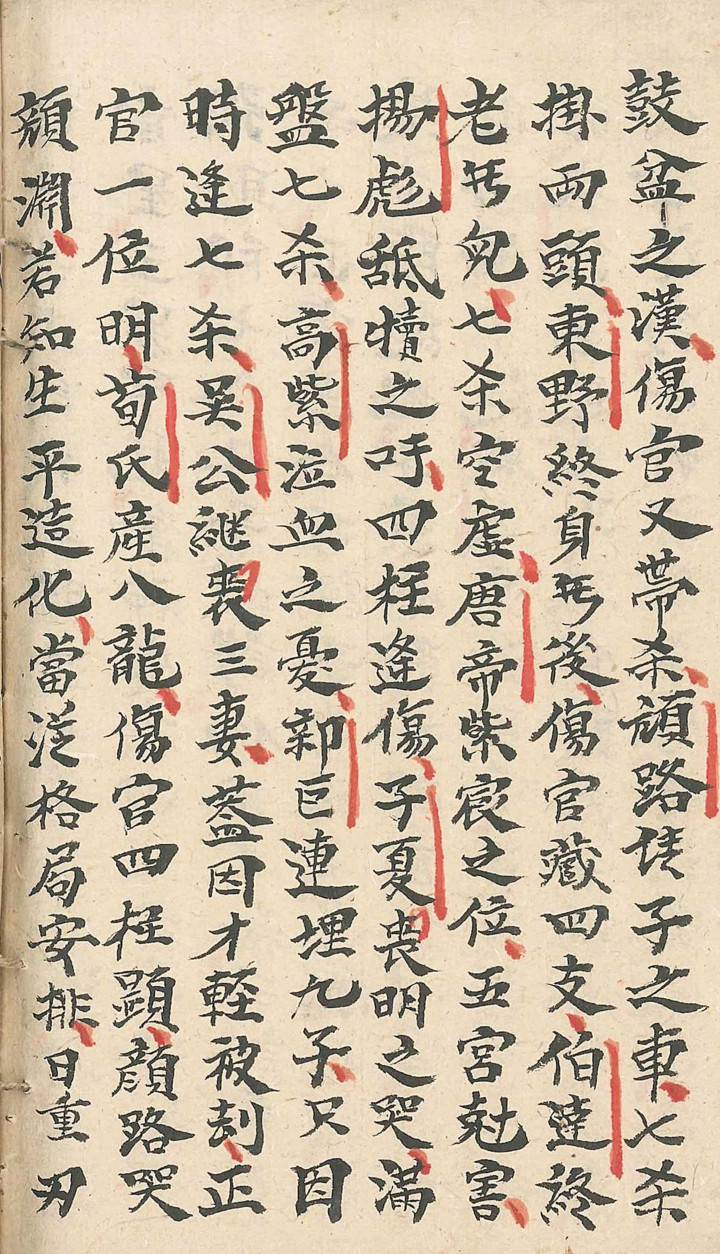 鼓盆之漢傷官又帶杀顔路請子之車七杀
掛両頭東野終身旡後傷官藏四支伯達終
老旡兒七杀空虚唐帝紫宸之位五宮尅害
揚彪舐犢之吁四柱逢傷子夏丧明之哭滿
盤七杀高紫泣血之憂郭巨連埋九子只因
時逢七杀吴公継丧三妻盖因才輕被刦正
官一位明荀氏産八龍傷官四柱顕顔路哭
顔淵若知生平造化當従格局安排日重刃